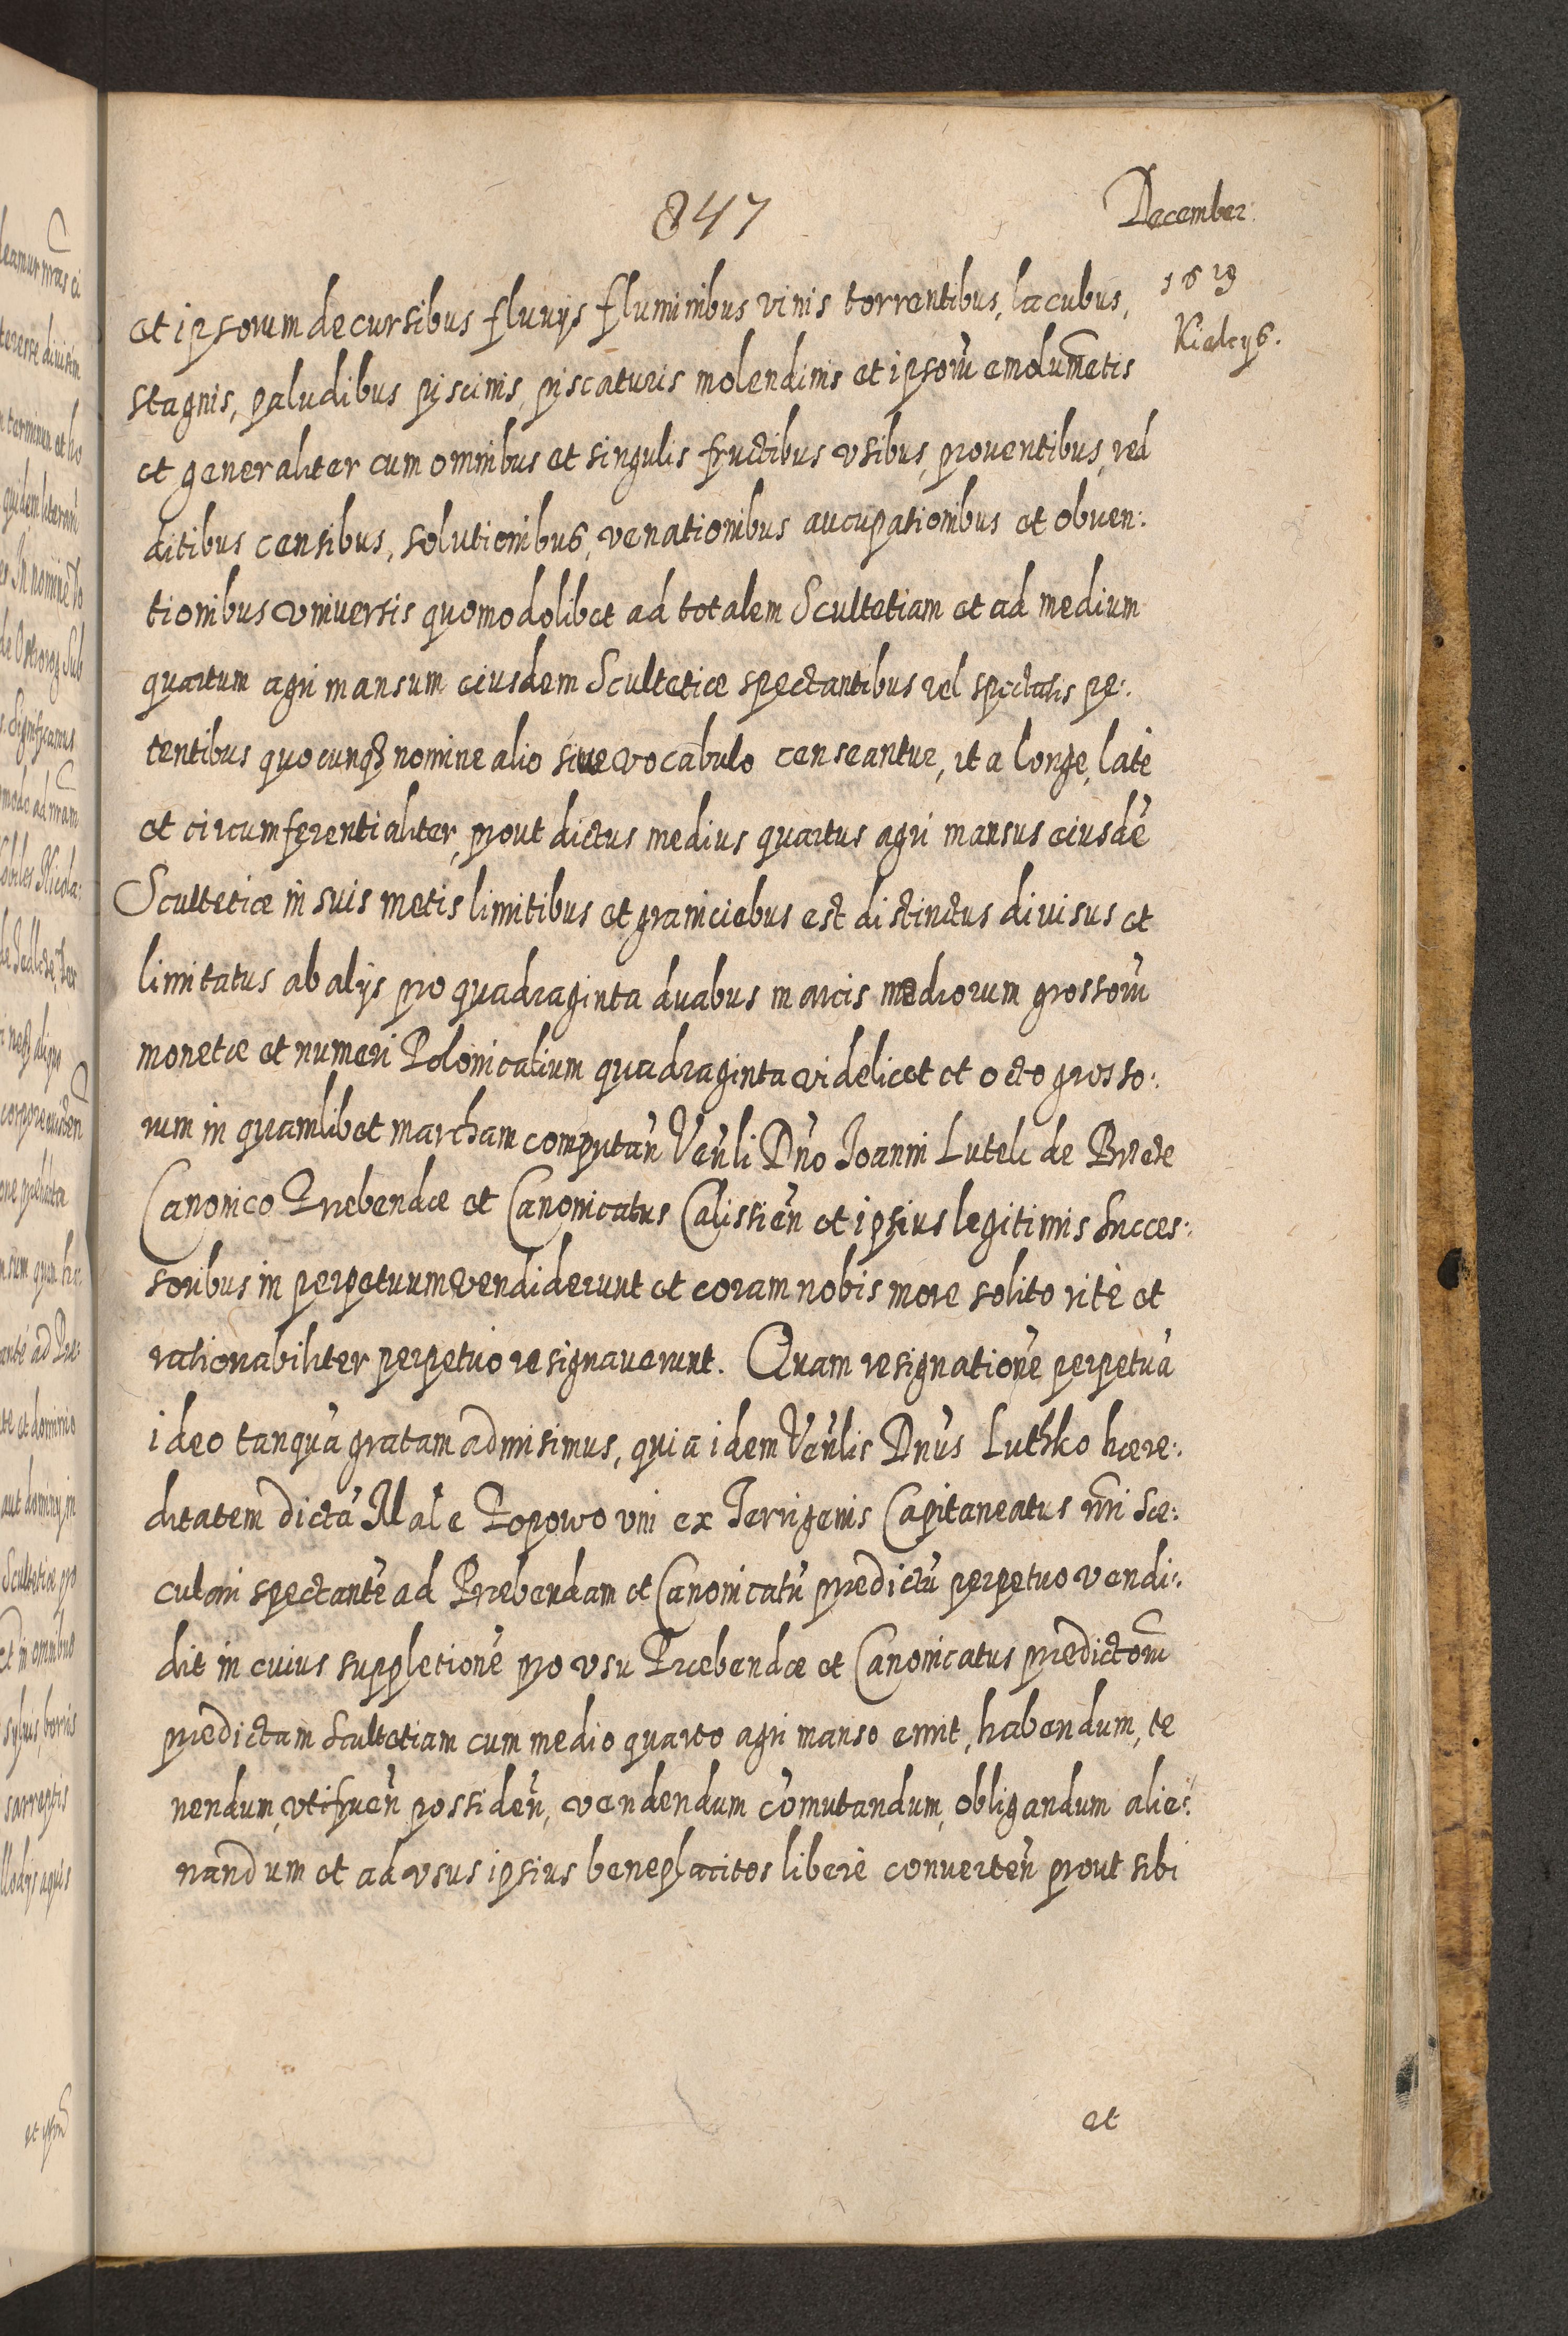 847
December
1619
Kielcys.
et ipsorum decursibus fluvijs fluminibus vinis torrentibus, lacubus,
stagnis, paludibus piscinis, piscaturis molendinis et ipsorũ emolumẽtis
et generaliter cum omnibus et singulis fructibus vsibus, prouentibus, red
ditibus censibus, solutionibus, venationibus aucupationibus et obuen:
tionibus vniuersis quomodolibet ad totalem Scultetiam et ad medium
quartum agri mansum eiusdem Scultetiæ spectantibus vel spectatis pe:
tentibus quocunqꝫ nomine alio siue vocabulo censeantur, ita longe, latè
et circumferentialiter, prout dictus medius quartus agri mansus eiusdẽ
Scultetiæ in suis metis limitibus et graniciebus est distinctus diuisus et
limitatus ab alijs pro quadraginta duabus marcis mediorum grossorũ
monetæ et numeri Polonicalium quadraginta videlicet et octo grosso:
rum in quamlibet marcham computañ Veñli Dño Joanni Lutek de Brzezie
Canonico Præbendæ et Canonicatus Calissieñ et ipsius legitimis Succes:
soribus in perpetuum vendiderunt et coram nobis more solito ritè et
rationabiliter perpetuo resignauerunt. Quam resignationẽ perpetuã
ideo tanquã gratam admisimus, quia idem Veñlis Dñus Luthko hære:
ditatem dictã Male Popowo vni ex Terrigenis Capitaneatus nr̃i Sæ:
culari spectantẽ ad Præbendam et Canonicatũ prædictũ perpetuo vendi:
dit in cuius suppletionẽ pro vsu Præbendæ et Canonicatus prædictorũ
prædictam Scultetiam cum medio quarto agri manso emit, habendum, te
nendum, vtifrueñ possideñ, vendendum com̃utandum, obligandum alie:
nandum et ad vsus ipsius beneplacitos liberè conuerteñ prout sibi
et